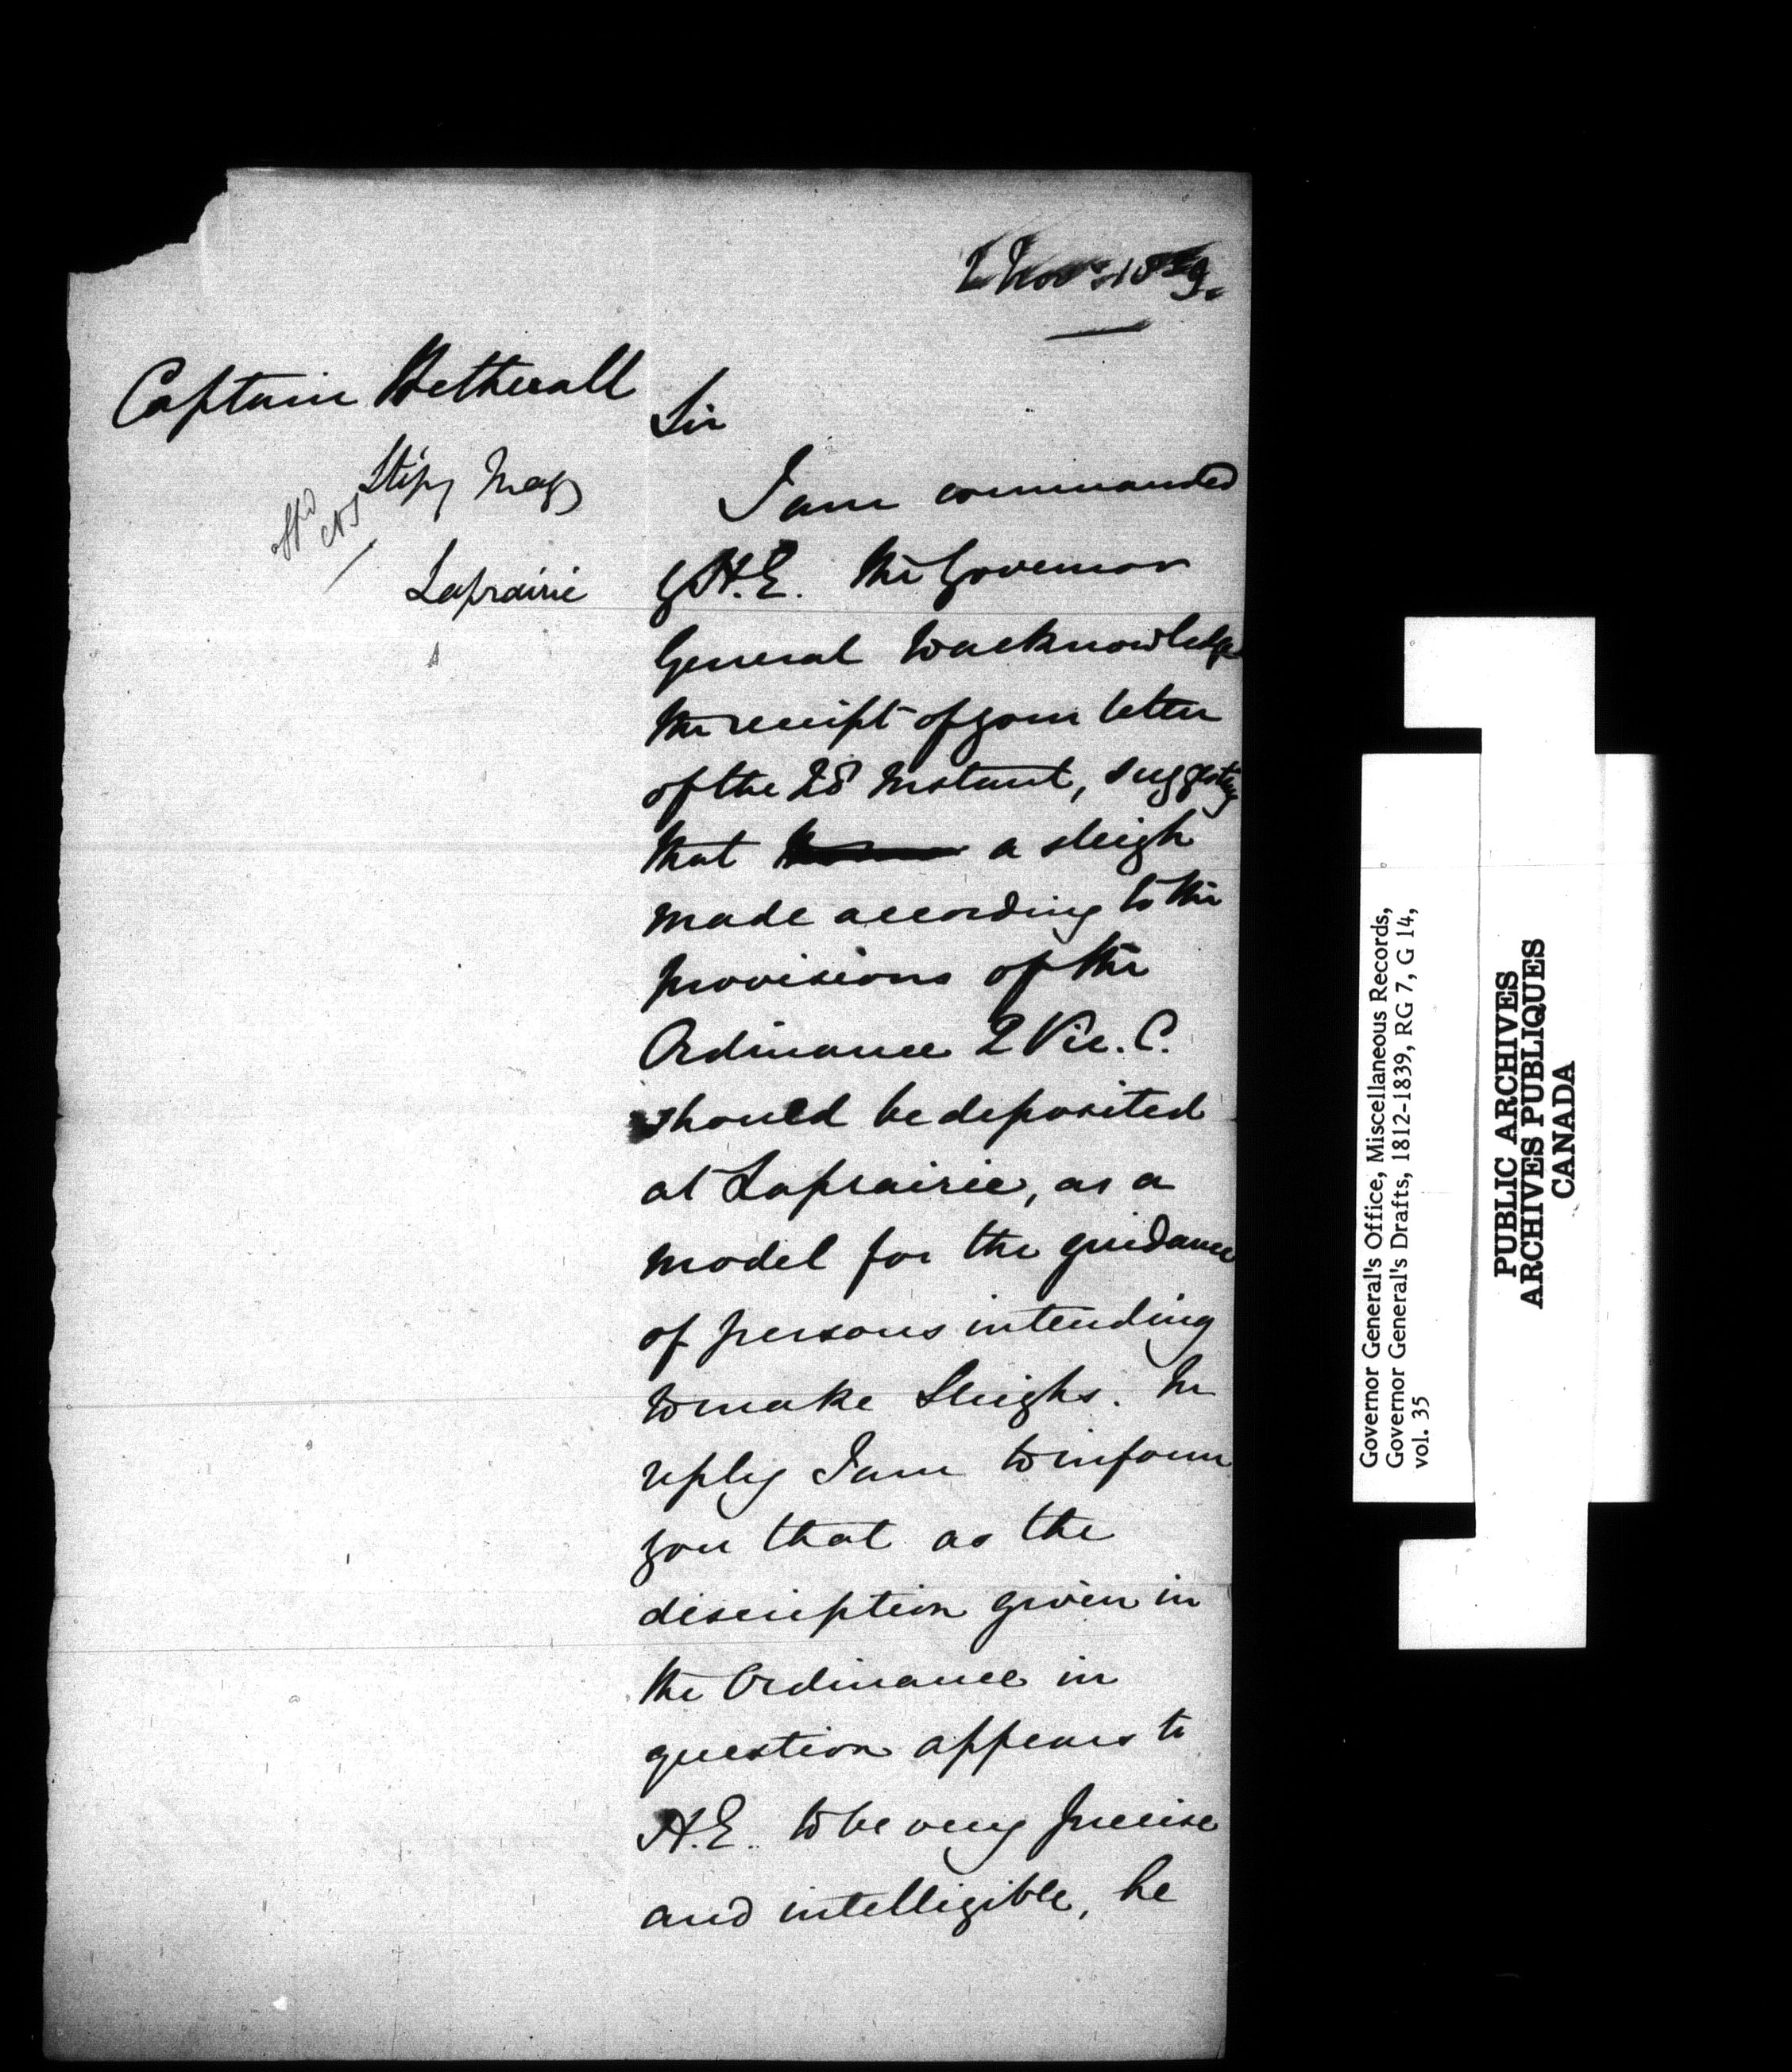 2 Nov. 1839.
Captain Wetherall
Stipy Mag
Laprairie
Sir
I am commanded
by H.E. the Governor
General to acknowledge
the receipt of your letter
of the 28 Instant, suggesting
that a sleigh
made according to the
provisions of the
Ordinance 2 Vic. C.
should be deposited
at Laprairie, as a
model for the guidance
of persons intending
to make Sleighs. In
reply I am to inform
you that as the
discription given in
the Ordinance in
question appears to
H.E. to be very precise
and intelligible, he
Governor General's Office, Miscellaneous Records,
Governor General's Drafts, 1812-1839, RG 7, G 14,
vol. 35
PUBLIC ARCHIVES
ARCHIVES PUBLIQUES
CANADA